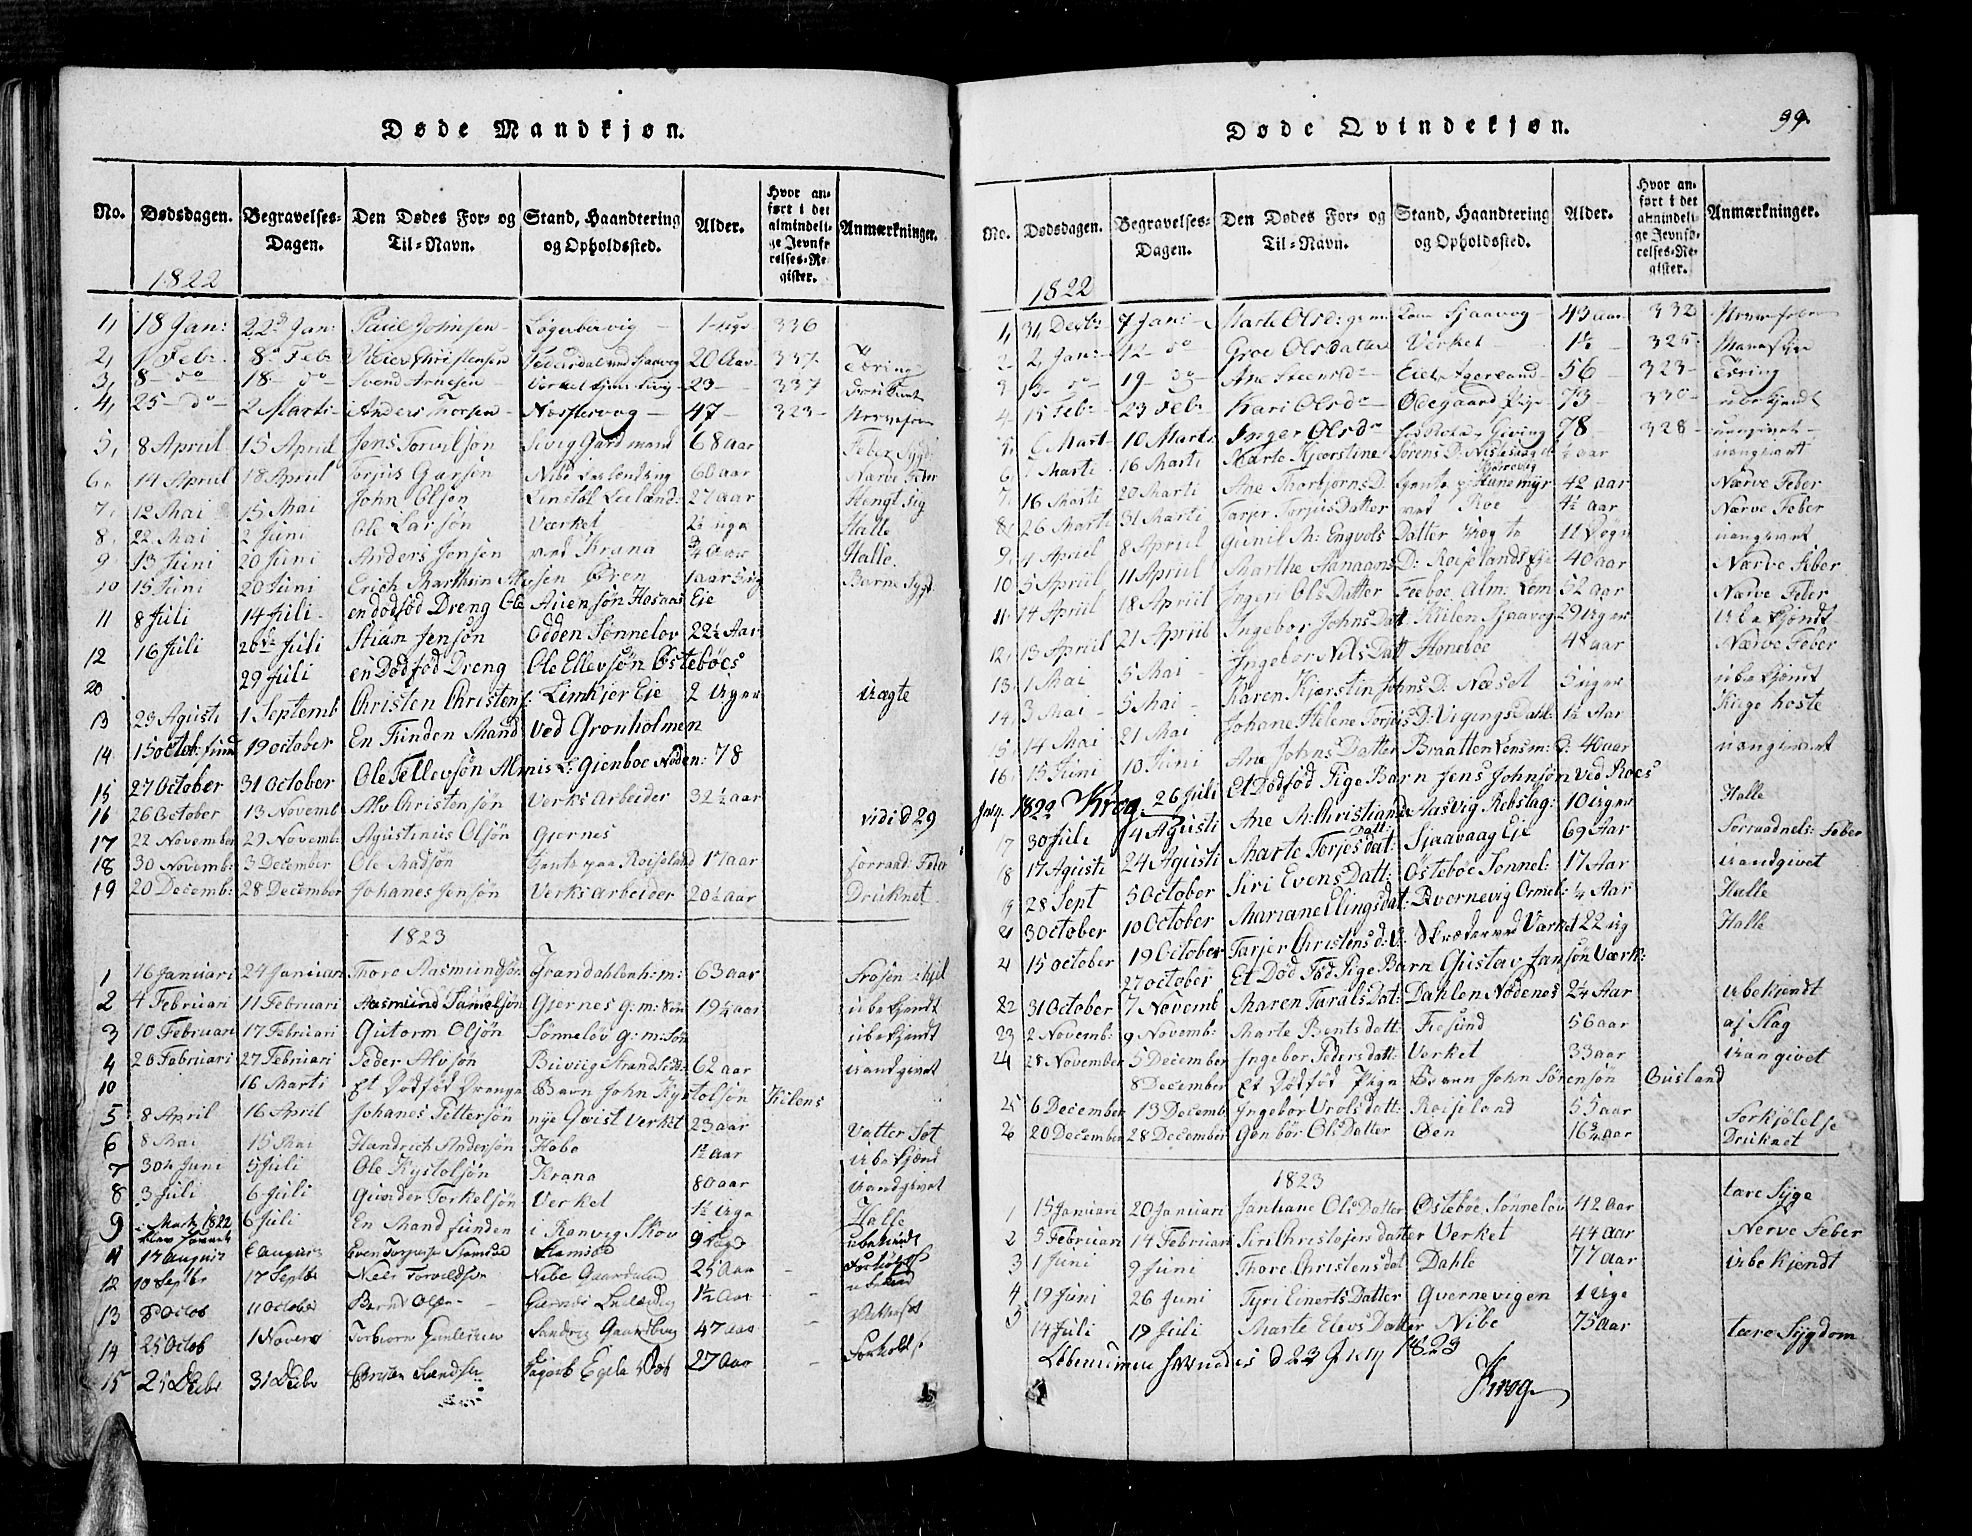 Døde Mandkjøn.
No. Dødsdagen. Begravelses-Dagen. Den Dødes For- og Til-Navn. Stand, Haandtering og Opholdssted. Alder. Hvor anført i det almindelige Jevnførelses-Register. Anmærkninger.
1822
1, 18 Jan: 22d Jan: Paul Johnsen 336
2, 1 Feb: 8d Feb Christensen 20 Aar 337 Tæring
3, 8 do 18 do Svend Arnesen Verket 23 337
4, 25 do 2 Marti Anders Torsen Næstervog 47 323
5, 8 April 15 April Jens Torvilsøn Sivig Gard mand 68 aar Feber Syg:
6, 14 April 18 April Torjus Garsøn Nibe 60 aar Nærve Feber
7, 12 Mai 15 Mai John Olsøn Linstøl Leiland: 27 aar Hengt sig
8, 22 Mai 2 Juni Ole Larsøn Værket uga Halle
9 13 Juni 20 Juni Anders Jensen ved Krana 3/4 Aar Halle.
10 15 Juni 20 Juni Erich Marthin Øren 1 aar Barne Syg
11 8 Juli 14 Juli en dødfød Dreng Ole Auensøn Hasaas Eje
12 16 Juli 20de Juli Stian Jensøn Odden Sønneløv 22½ Aar
20 29 Juli en Dødfød Dreng Ole Ellevsøn Østebøes
13 29 Agusti 1 Septemb Christen Christens: Limkjer Eje 2 Uger Uægte
14 15 octob: fund 19 october En Funden Mand Ved Gronholmen
15 27 October 31 October Ole Tellevsøn Almis L: Gjenboe Nøden: 78
16 26 October 13 Novemb Alv Christensøn Verks Arbeider 32½ aar
17 22 November 29 Novemb: Agustinus Olsøn Gjernes vidi d 29
18 30 Novemb: 3 December Ole Madsøn Gente paa Roiseland 17 aar forraad: Feber
19 20 Decemb: 28 December Johanes Jensøn Verks Arbeider 20½ aar Druknet.
1823
1 16 Januari 24 Januari Thore Rasmundsøn Grandahlen h: m: 63 aar Frosen ihjel
2 4 Februari 11 Februari Aasmund Samelsøn Gjernes g: m: Søn 19¼ aar ubekjendt
3 10 Februari 17 Februari Gutorm Olsøn Sønneløv g: m: Søn ubekjendt
4 20 Februari 27 Februari Peder Alvsøn Buviig Strandsidd: 62 aar uandgivet
10 16 Marti Et Dødfød Drenge Barn John Kystolsøn Kilens
5 8 April 16 April Johanes Pettersøn nye Qvist Verket 23 aar
6 8 Mai 15 Mai Hendrich Andersøn Habo 1½ aar Vatter Sot
7 30te Juni 5 Juli Ole Kystolsøn Krana 80 aar ubekjænd
8 3 Juli 6 Juli Gunder Torkelsøn Verket 1½ Uge uandgivet
9 i Marti 1822 6 Juli En Mand funden i Ranvig Skov Halse
11 17 August 6 August Even Torjusse 9 Dage ubekindt
12 10 Septbr 17 Septbr Niels Torvildsen Nibe Gaardmand 25 Aar
13 8 Octob 11 October Bernt Olsen 1½ Aar
14 25 Octob 1 Novem Torbiorn Gunlesen Sandvig 47 aar
15 25 Debr 31 Debr Egela 27 Aar
Døde Qvindekjøn.
99.
No. Dødsdagen. Begravelses-Dagen. Den Dødes For- og Til-Navn. Stand, Haandtering og Opholdssted. Alder. Hvor anført i det almindelige Jevnførelses-Register. Anmærkninger.
1822
1, 31 Decbr 7 Jan: Marte Olsd: Sjaavog 43 aar 332
2 2 Jan: 12 do Groe Olsdatter Verket 1½ 325
3 13 do 19 do Ane Eiet Agerland 56 323 Tæring
4 15 Febr 23 Febr Kari Olsd: Ødegaard Pige 73 330 ubekjendt
5, 6 Mart 10 Marti Inger Olsd: Giving 78 328 uangivet
6 Marti 16 Marti Marte Kjerstine Sørens D: uangivet
7, 16 Marti 20 Marti Ane Thorbjørns D: Gjente paa Hanemyr 42 aar Nærve Feber
8, 26 Marti 31 Marti Tarjer Torjus Datter ved Roe 4½ aar Nærve Feber
9, 4 April 8 April Gunil M: Engvols Datter Uægte 11 Døgn uangivet
10 5 April 11 April Marthe Aanaans D: Roiselands Eje 40 aar Nærve Feber
11 14 April 18 April Ingeri Ols Datter Feeboe Alm: Lem 52 aar Nærve Feber
12, 13 April 21 April Ingebor Johns Dat: Kilen Sjaavog 29 Uger Ubekjendt
13 1 Mai 5 Mai Ingebor Nels Dat Honeboe 48 aar Nærve Feber
14, 3 Mai 5 Mai Karen Kjerstin Johns D: Næset 5 uger ubekjendt
15 14 Mai 21 Mai Johane Helene Torjus D: Vigings Dahl: 1½ Aar Kige hoste
16 15 Juni 10 Juni Ane Johns Datter Braatten 40 aar uangivet
26 Juli Et Dødfød Pige Barn Jens Johnsøn ved Roes
July. 1822 Krog.
7 30 Juli 4 Agusti Ane M: Christians Aasvig Rebslag: 10 Uger Halle
8 17 Agusti 24 Agusti Marte Torjes dat: Sjaavaag Eje 69 Aar Forraadnels: Feber
9 28 Sept 5 October Siri Evens Datt: Østebøe Sønnel: 17 Aar Uandgivet
3 October 10 October Mariane Ellings dat: Qvernevig Ormel: ¼ Aar Halle
15 October 19 October Tarjer Christens d: V: Skræder ved Værket 22 ug Halle
27 October Et Død Fød Pige Barn Gustav Jansøn Værk:
22 31 October 7 Novemb Maren Tarals Dat: Dahlen Nødenes 2¼ Aar Ubekjendt
23 2 Novemb: 9 Novemb: Marte Bents datt: Fresund 56 aar af Slag
24 28 November 5 December Ingebor Peders datt: Verket 33 aar Uangivet
8 December Et Dødfød Pige Barn John Sørensøn Gusland
25 6 December 13 Decemb Ingebor Vrols datt: Roiseland 55 aar Forkjølelse
26 20 December 28 December Gonbør Ols Datter Øen 16¾ aar Druknet
1823
1 15 Januari 20 Januari Janhane Ols Datter Østebøe Sønneløv 42 aar tære Syge
2 5 Februari 14 Februari Siri Christofers datter Verket 44 aar Nerve Feber
3 1 Juni 9 Juni Thore Christens dat Dahle 77 aar Ubekjendt
4 19 Juni 26 Juni Tyri Einerts Datter Qvernevigen 1 Uge
5 14 Juli 19 Juli Marte Elevs Datter Nibe 75 aar tære Sygdom
d 23 July 1823
Krog